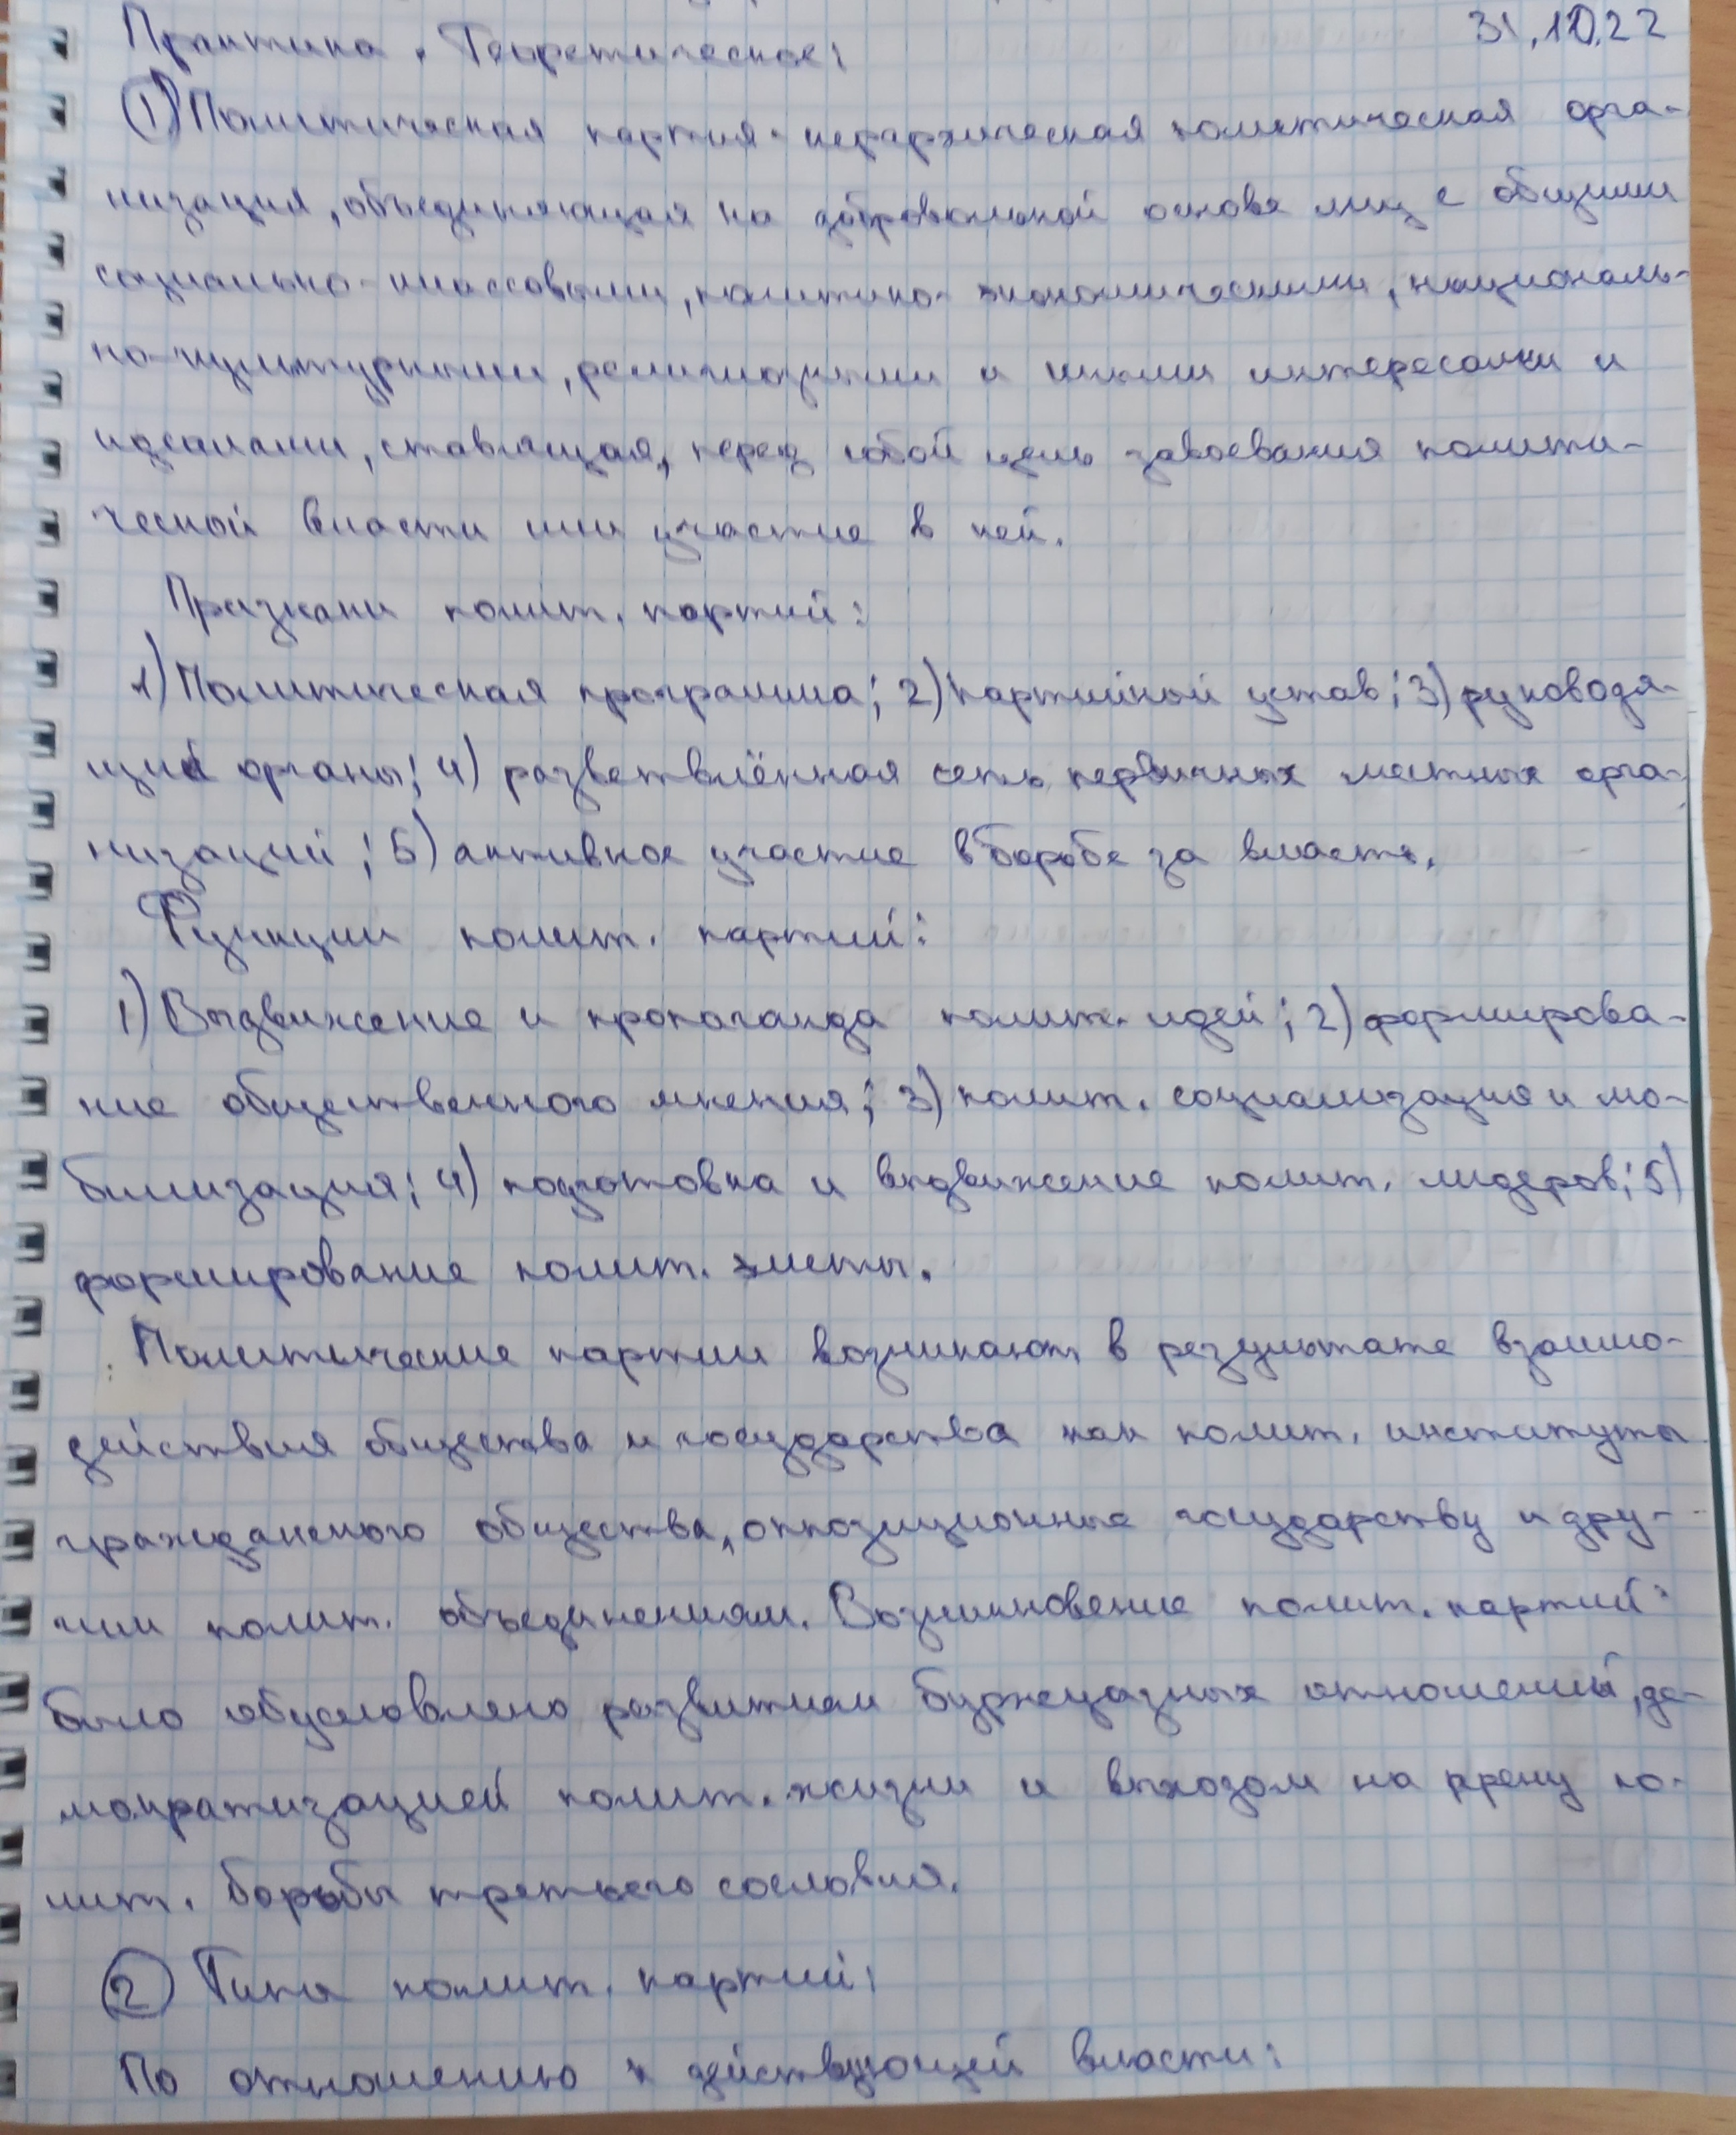 Практика. Теоретическое:
31.10.22
① Политическая партия - иерархическая политическая орга-
низация, объединяющая на добровольной основе лиц с общими
социально-классовыми, политико-экономическими, националь-
но-культурными, религиозными и иными интересами и
идеалами, ставящая, перед собой цель завоевания полити-
ческой власти или участие в ней.
Признаки полит. партий:
1) Политическая программа; 2) партийной устав; 3) руководя-
щий органы; 4) разветвлённая сеть первичных местных орга-
низаций; 5) активное участие в борьбе за власть.
Функции полит. партий:
1) Выдвижение и пропоганда полит. идей; 2) формирова-
ние общественного мнения; 3) полит. социализация и мо-
билизация; 4) подготовка и выдвижение полит. лидеров; 5)
формирование полит. элиты.
Политические партии возникают в результате взаимо-
действия общества и государства как полит. институты
гражданского общества, оппозиционные государству и дру-
гим полит. объединениям. Возникновение полит. партий
было обусловлено развитием буржуазных отношений, де-
мократизацией полит. жизни и выходом на арену по-
лит. борьбы третьего сословия.
② Типы полит. партий:
По отношению к действующей власти: